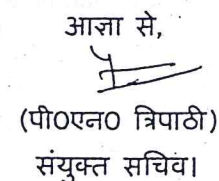 आज्ञा से,
(पी0एन0 त्रिपाठी)
संयुक्त सचिव।